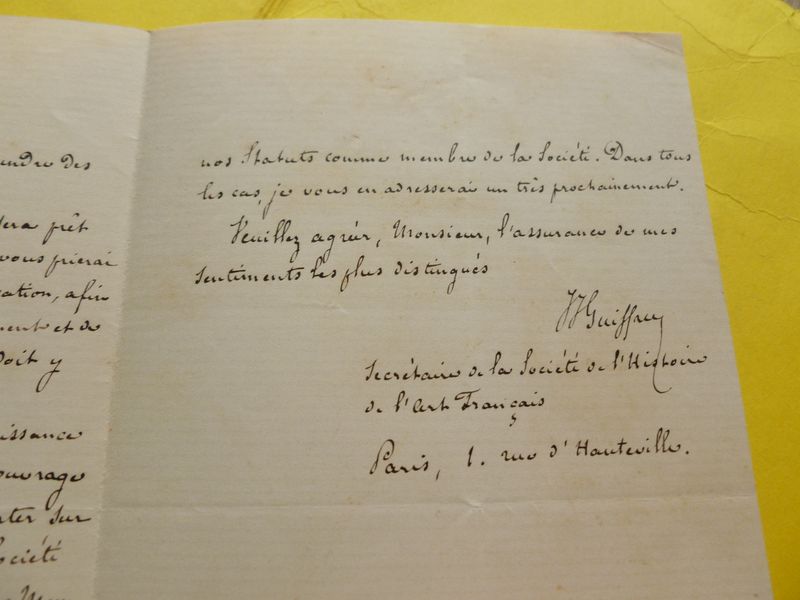 endre des
dera prêt
vous prierai
cation, afin
ment et de
doit y
issance
ouvrage
ter sur
Société
nos Statuts comme membre de la Société. Dans tous
les cas, je vous en adresserai un très prochainement.
Veuillez agréer, Monsieur, l'assurance de mes
sentiments les plus distingués
JJ Guiffrey
Secrétaire de la Société de l'Histoire
de l'Art Français
Paris, 1. rue d'Hauteville.